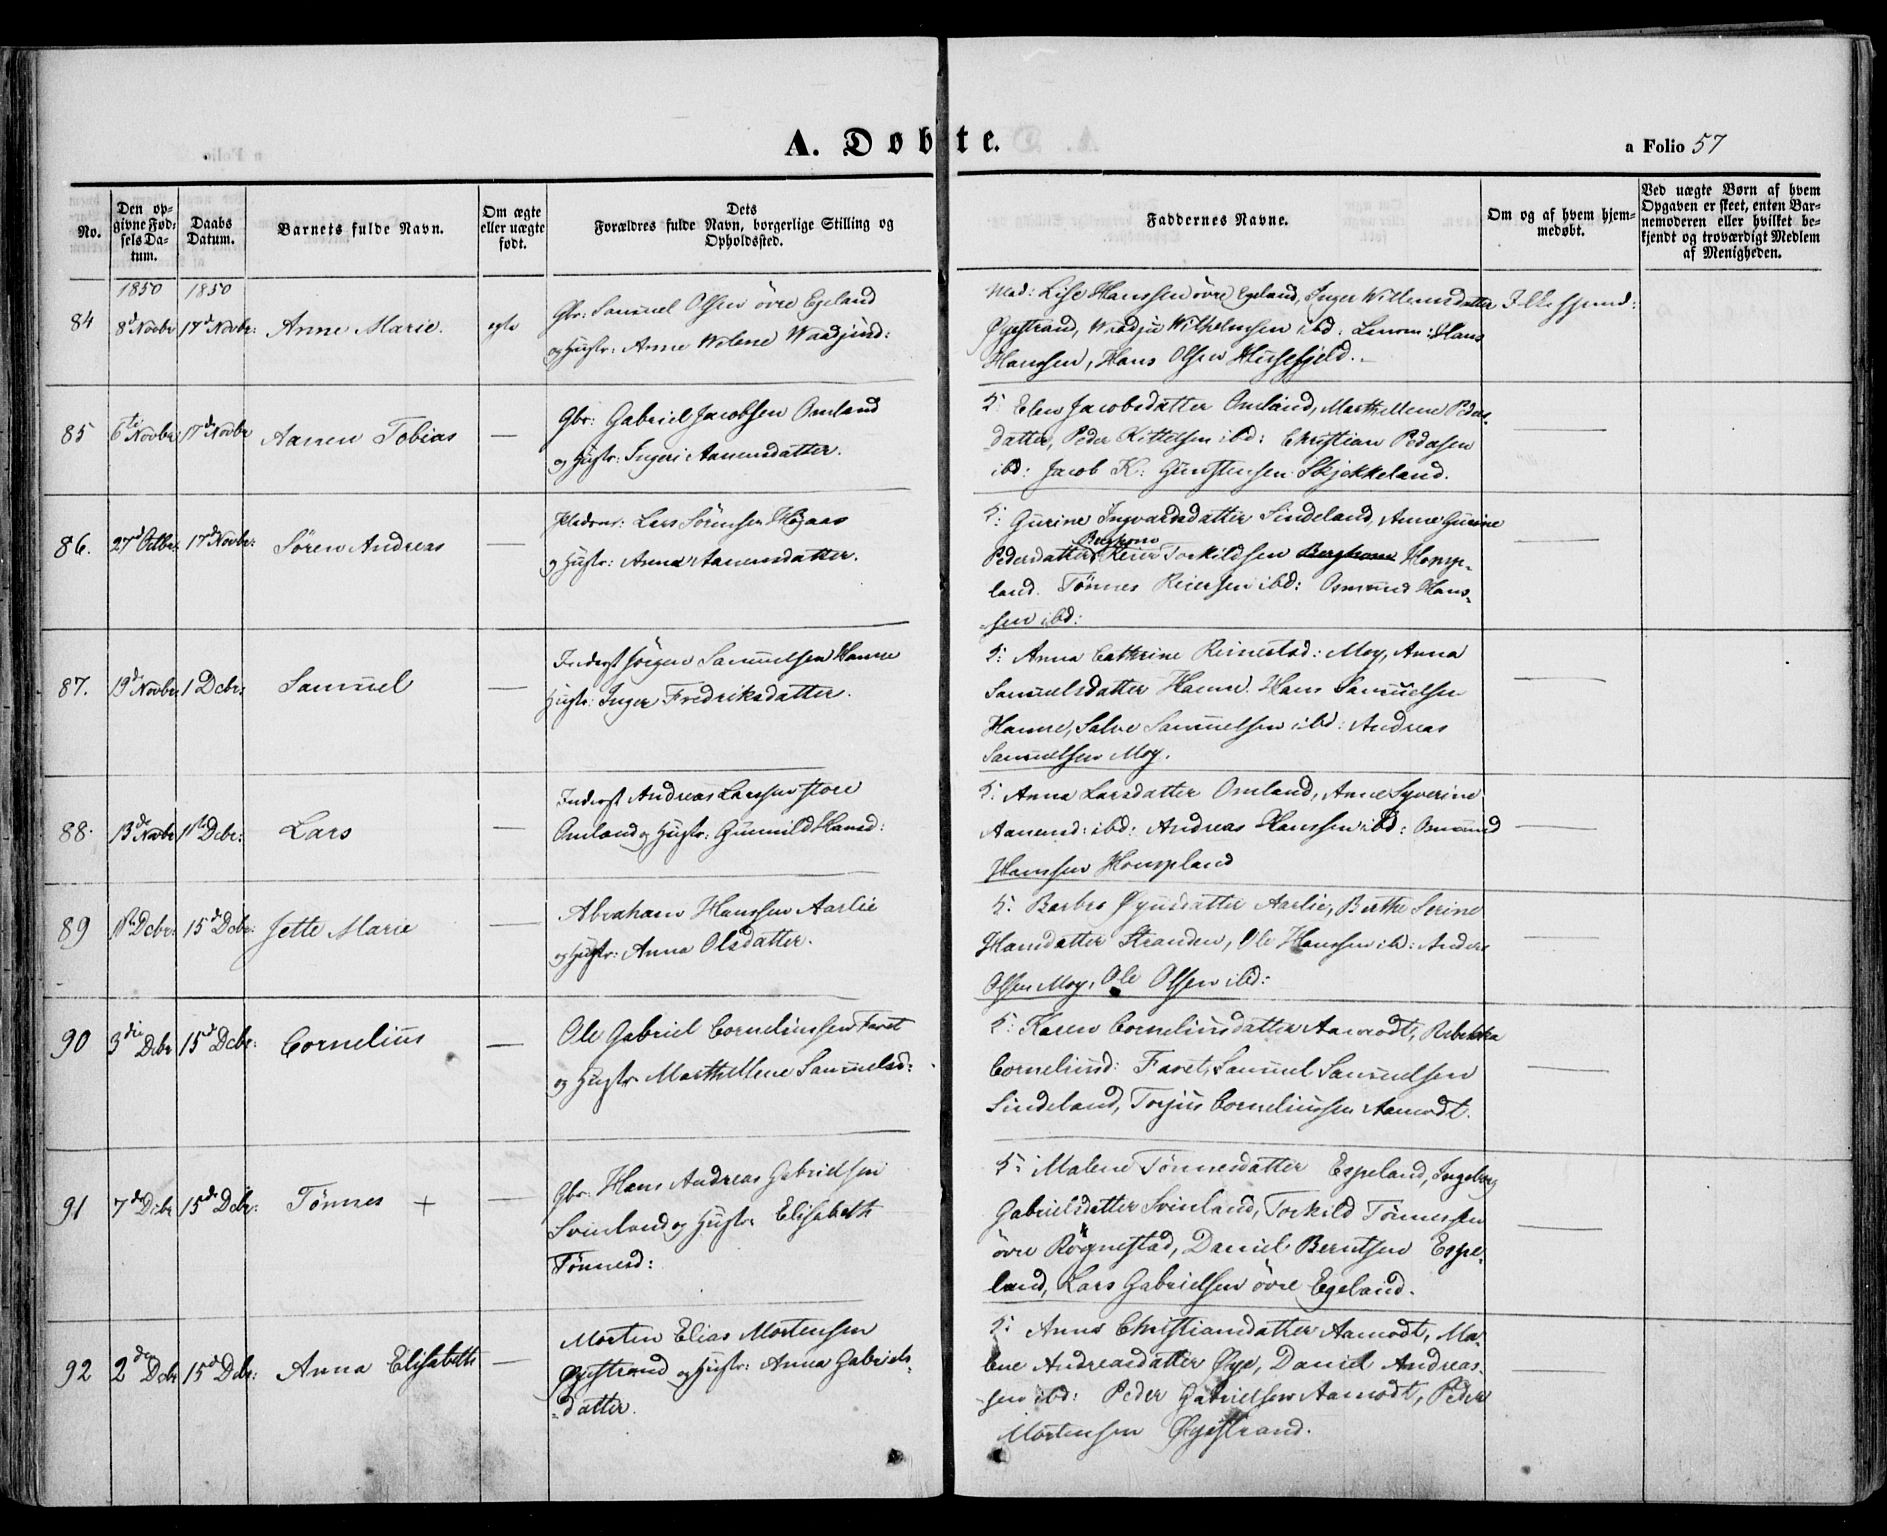 A. Døbte.
a Folio 57
No.
Den op-
givne Fød-
sels Da-
tum.
Daabs
Datum.
Barnets fulde Navn.
Om ægte
eller uægte
født.
Dets
Forældres fulde Navn, borgerlige Stilling og
Opholdssted.
Faddernes Navne.
Om og af hvem hjem-
medøbt.
Ved uægte Børn af hvem
Opgaven er skeet, enten Bar-
nemoderen eller hvilket be-
kjendt og troværdigt Medlem
af Menigheden.
1850 1850
84 8d Novbr 17d Novbr: Anne Marie. egte
Gbr: Samuel Olsen övre Egeland
og Hustr: Anne Wolene Waadjusd:
Mad: Lise Hanssen övre Egeland, Inger Willumsdatter
Øyestrand, Waadju Wilhelmsen ibd: Lensm: Hans
Hanssen, Hans Olsen
85 6te Novbr 17d Novbr Aanen Tobias —
Gbr: Gabriel Jacobsen Omland
og Hustr: Ingeri Aanensdatter.
F: Elen Jacobsdatter Omland, Marth Mene Peders-
datter, Peder Kittelsen ibd: Christian Pedersen
ibd: Jacob K: Gunstensen Skjekkeland.
86. 27d Octbr: 17d Novbr: Søren Andreas —
Pladsmr: Lars Sörensen Høyaas
og Hustr: Anna Aanensdatter.
F: Gurine Ingvardsdatter Sindeland, Anne Gurine
Pedersdatter Berghom Reier Torkildsen Berghom Homp-
land. Tönnes Reiersen ibd: Osmund Hans-
sen ibd:
87. 19d Novbr 1 Dcbr: Samuel —
Inderst Jörgen Samuelsen Hanne
Hustr: Inger Fredriksdatter.
F: Anna Cathrine Reinestad: Moy, Anna
Samuelsdatter Hanne. Hans Samuelsen
Hanne, Salve Samuelsen ibd: Andreas
Samuelsen Moy.
88. 13d Novbr 1ste Dcbr: Lars —
Inderst Andreas Larssen store
Omland og Hustr: Gunnild Hansd:
F: Anna Larsdatter Omland, Anne Syverine
Aanensd: ibd: Andreas Hanssen ibd: Osmund
Hanssen Hompland
89 1ste Dcbr: 15d Dcbr: Jette Marie —
Abraham Hanssen Aarlie
og Hustr: Anna Olsdatter.
F: Barbro Öynsdatter Aarlie, Berthe Serine
Hansdatter Stranden, Ole Hanssen ibd: Anders
Olsen Moy, Ole Olsen ibd:
90 3die Dcbr 15d Dcbr: Cornelius —
Ole Gabriel Corneliussen Faret
og Hustr Marth Mene Samuelsd:
F: Karen Corneliusdatter Aamodt, Rebekka
Corneliusd: Faret, Samuel Samuelsen
Sindeland, Torjus Corneliussen Aamodt.
91 7de Dcbr 15d Dcbr: Tönnes + —
Gbr. Hans Andreas Gabrielsen
Svinland og Hustr Elisabeth
Tönnesd:
F: Malene Tönnesdatter Espeland, Ingeborg
Gabrielsdatter Svinland, Torkild Tönnessen
övre Røgnestad, Daniel Berntsen Espe-
land, Lars Gabrielsen övre Egeland.
92 2den Dcbr 15d Dcbr: Anna Elisabeth —
Morten Elias Mortensen
Øyestrand og Hustr: Anna Gabriels-
datter.
F: Anne Christiansdatter Aamodt, Ma-
lene Andreasdatter Øye, Daniel Andreas-
sen ibd: Peder Gabrielsen Aamodt, Peder
Mortensen Øyestrand.